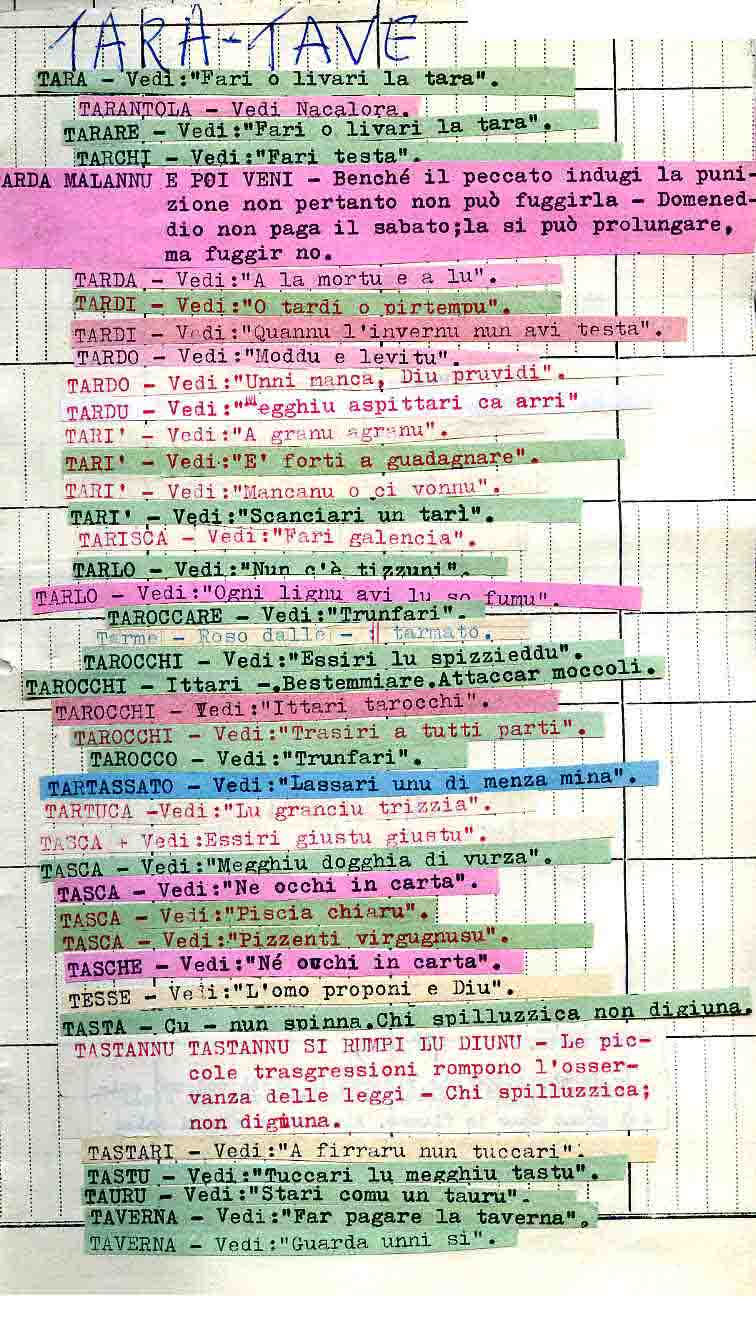 TARA-TAVE
TARA - Vedi:"Fari o livari la tara".
TARANTOLA - Vedi Nacalora.
TARARE - Vedi:"Fari o livari la tara".
TARCHI - Vedi:"Fari testa".
ARDA MALANNU E POI VENI - Benché il peccato indugi la puni-
zione non pertanto non può fuggirla - Domened-
dio non paga il sabato;la si può prolungare,
ma fuggir no.
TARDA - Vedi:"A la mortu e a lu".
TARDI - Vedi:"O tardi o pirtempu".
TARDI - Vedi:"Quannu l'invernu nun avi testa".
TARDO - Vedi:"Moddu e levitu".
TARDO - Vedi:"Unni manca, Diu pruvidi".
TARDU - Vedi:"Megghiu aspittari ca arri"
TARI' - Vedi:"A granu agranu".
TARI' - Vedi:"E' forti a guadagnare".
TARI' - Vedi:"Mancanu o ci vonnu".
TARI' - Vedi:"Scanciari un tarì".
TARISCA - Vedi:"Fari galencia".
TARLO - Vedi:"Nun c'è tizzuni".
TARLO - Vedi:"Ogni lignu avi lu so fumu".
TAROCCARE - Vedi:"Trunfari".
Tarme - Roso dalle - : tarmato.
TAROCCHI - Vedi:"Essiri lu spizzieddu".
TAROCCHI - Ittari -.Bestemmiare.Attaccar moccoli.
TAROCCHI - Vedi:"Ittari tarocchi".
TAROCCHI - Vedi:"Trasiri a tutti parti".
TAROCCO - Vedi:"Trunfari".
TARTASSATO - Vedi:"Lassari unu di menza mina".
TARTUCA -Vedi:"Lu granciu trizzia".
TASCA + Vedi:Essiri giustu giustu".
TASCA - Vedi:"Megghiu dogghia di vurza".
TASCA - Vedi:"Ne occhi in carta".
TASCA - Vedi:"Piscia chiaru".
TASCA - Vedi:"Pizzenti virgugnusu".
TASCHE - Vedi:"Né occhi in carta".
TESSE - Vedi:"L'omo proponi e Diu".
TASTA - Cu - nun spinna.Chi spilluzzica non digiuna.
TASTANNU TASTANNU SI RUMPI LU DIUNU - Le pic-
cole trasgressioni rompono l'osser-
vanza delle leggi - Chi spilluzzica;
non digiuna.
TASTARI - Vedi:"A firraru nun tuccari".
TASTU - Vedi:"Tuccari lu megghiu tastu".
TAURU - Vedi:"Stari comu un tauru".
TAVERNA - Vedi:"Far pagare la taverna".
TAVERNA - Vedi:"Guarda unni si".